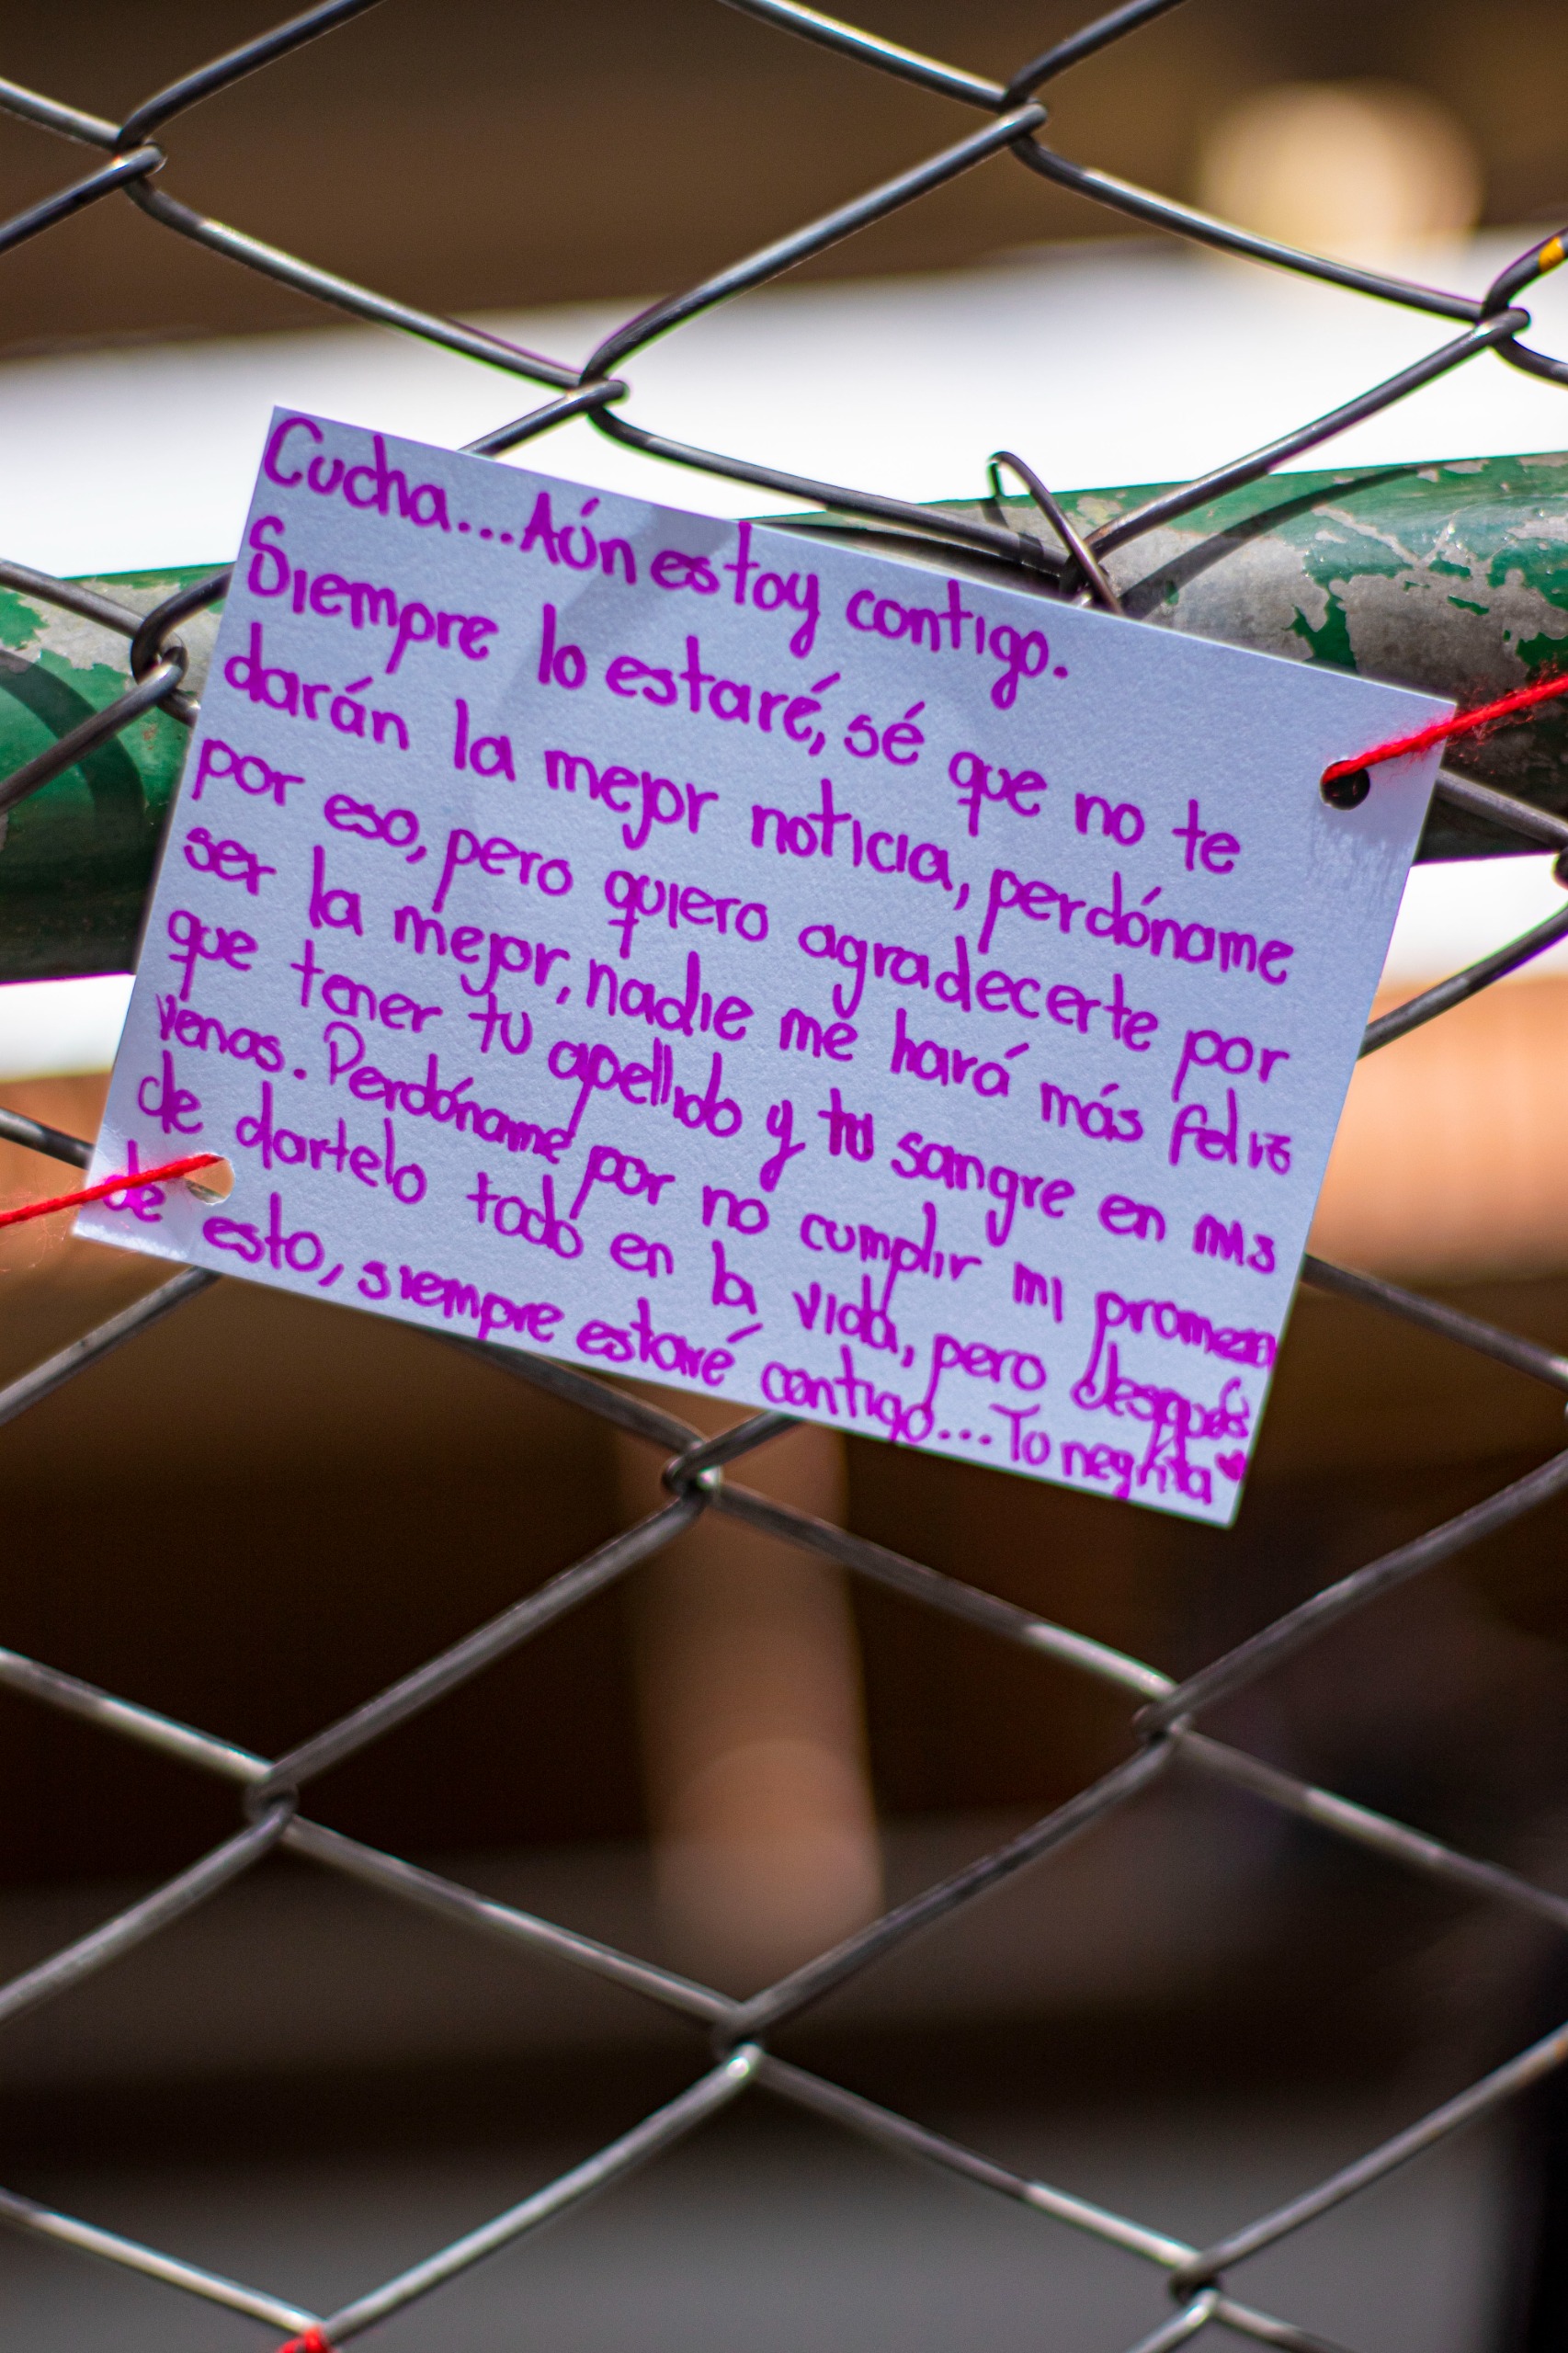 Cucha...Aún estoy contigo.
Siempre lo estaré, sé que no te
darán la mejor noticia, perdóname
por eso, pero quiero agradecerte por
ser la mejor, nadie me hará más feliz
que tener tu apellido y tu sangre en mis
venas. Perdóname por no cumplir mi promesa
de dartelo todo en la vida, pero después
de esto, siempre estaré contigo... Tu negrita